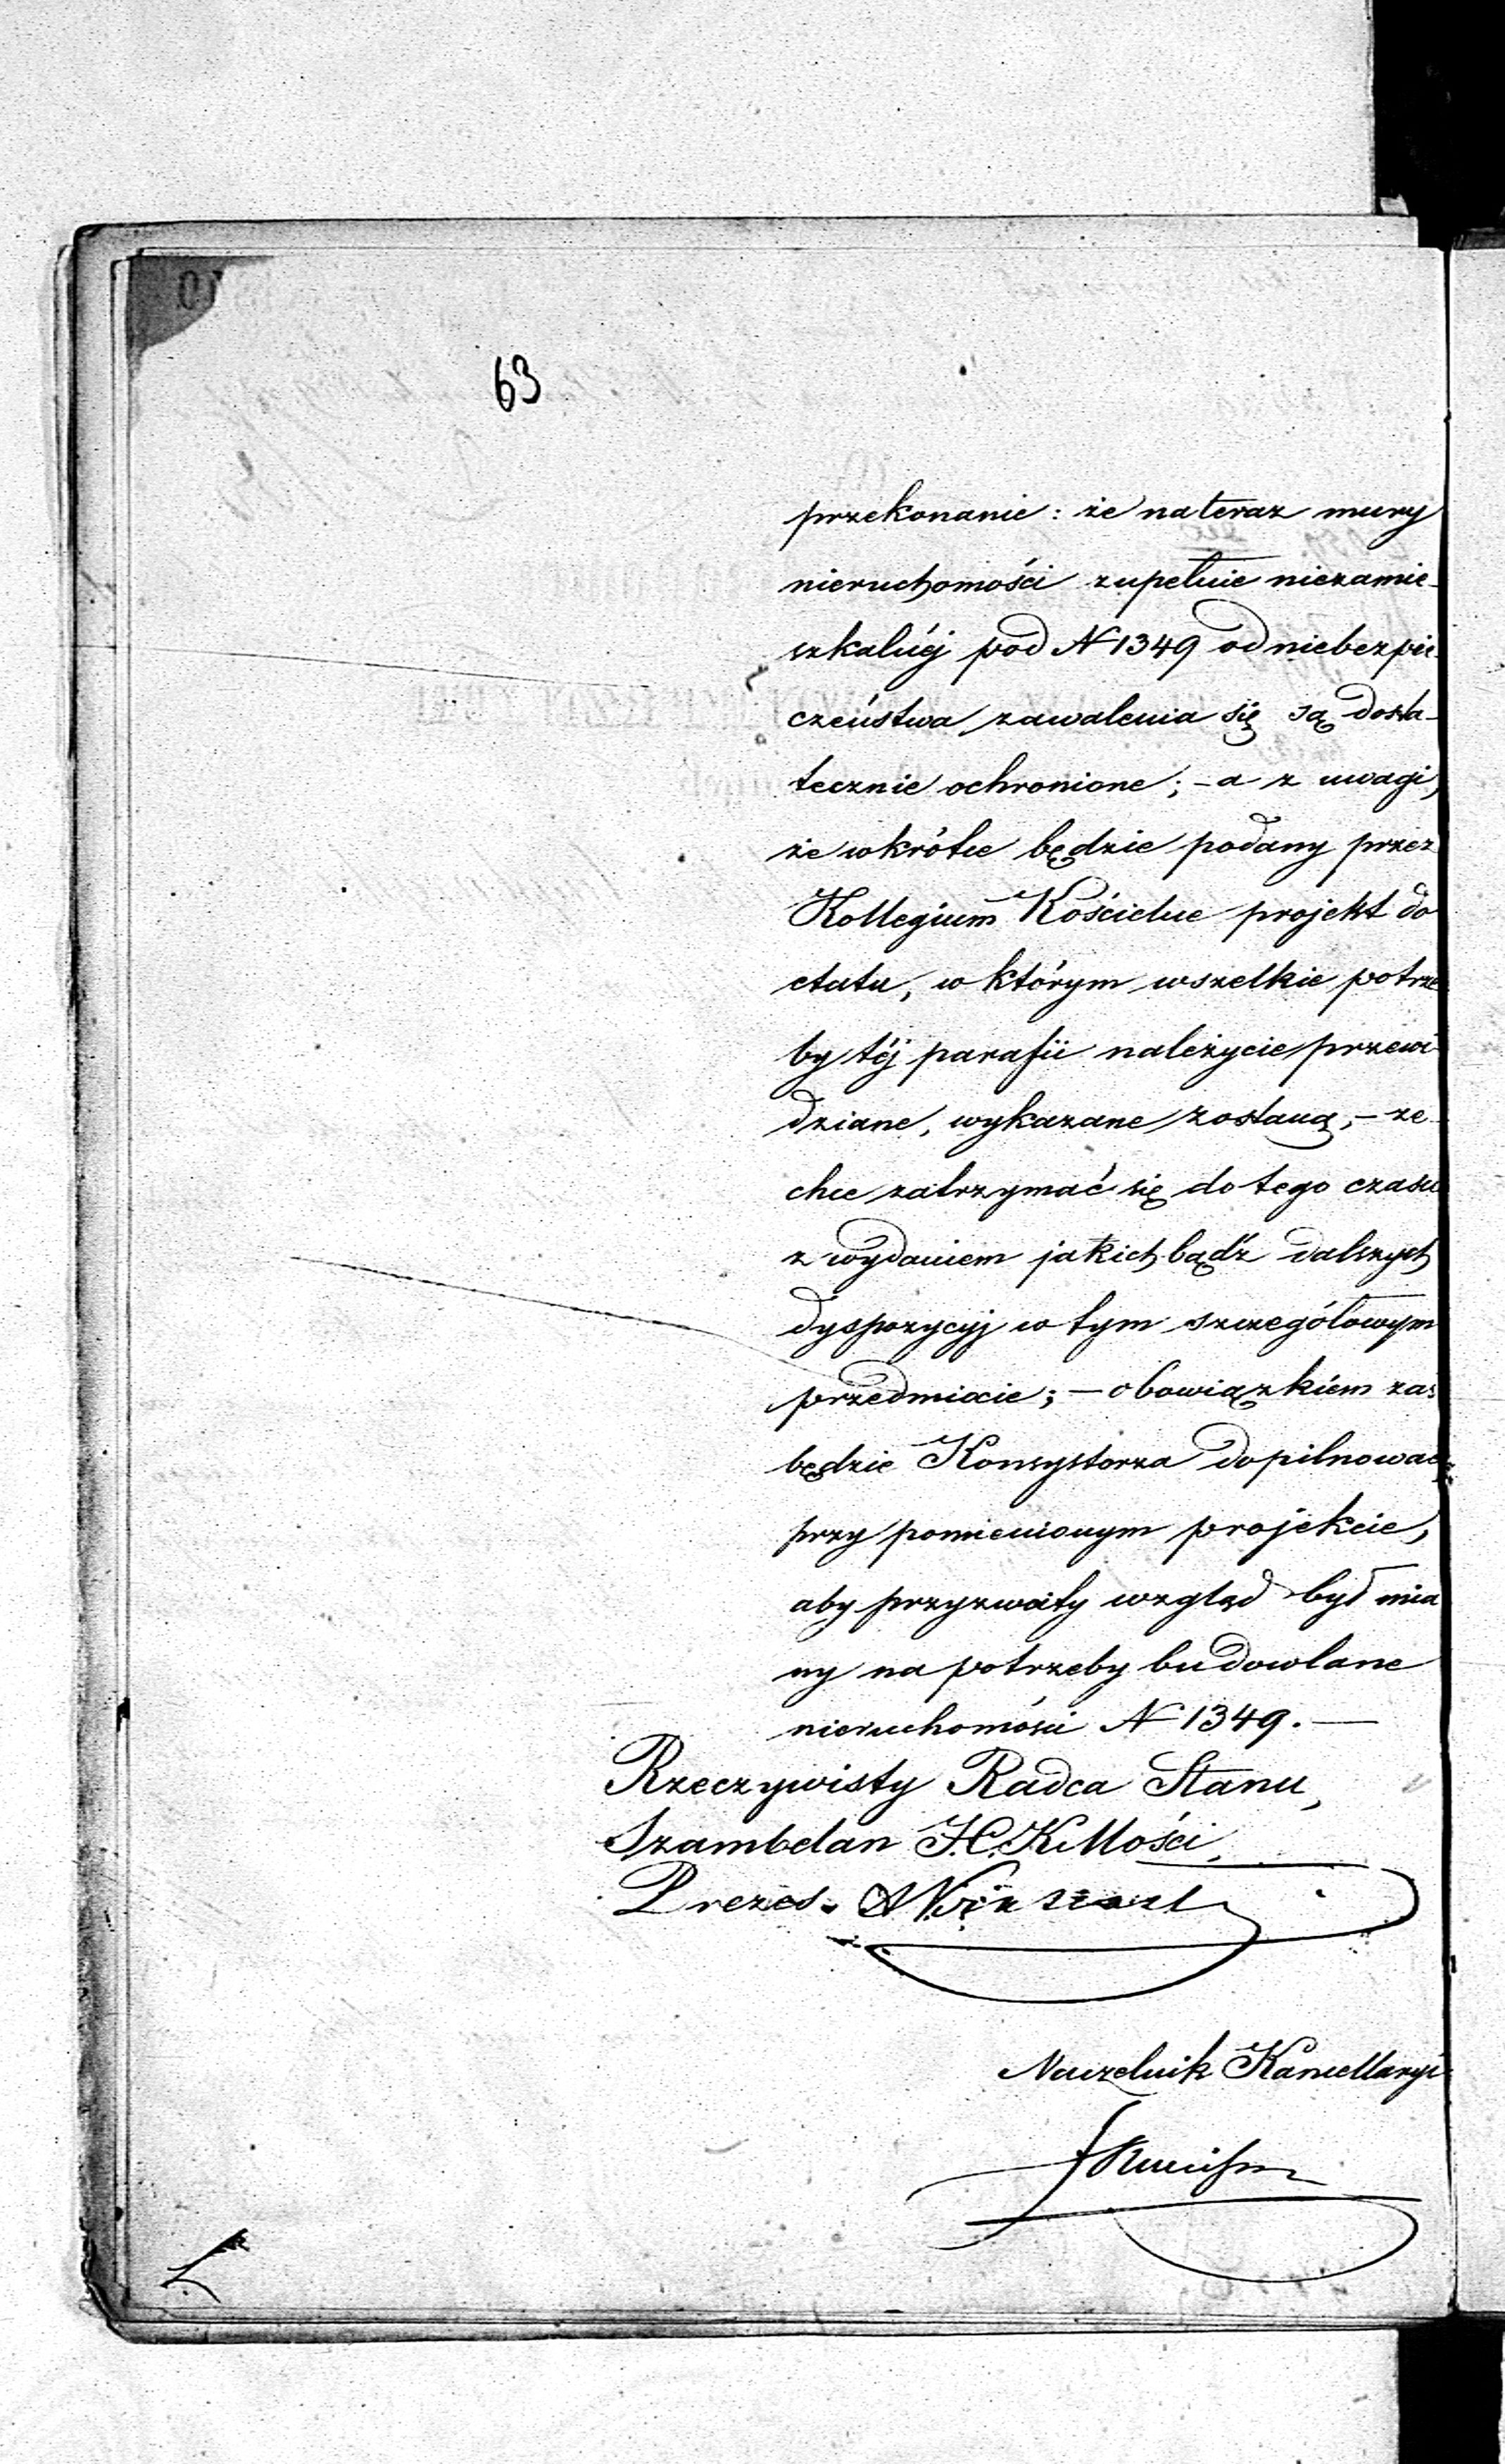 63
przekonanie: że na teraz mury
nieruchomości zupełnie niezamie-
szkałéj pod N 1349 od niebezpie-
czeństwa zawalenia się są dosta-
tecznie ochronione; - a z uwagi,
że wkrótce będzie podany przez
Kollegium Kościelne projekt do
etatu, w którym wszelkie potrze
by téj parafii należycie przewi-
dziane, wykazane zostaną, - ze-
chce zatrzymać się do tego czasu
z wydaniem jakich bądź dalszych
dyspozycyj w tym szczegółowym
przedmiocie; - obowiązkiem zaś
będzie Konsystorza dopilnować
przy pomienionym projekcie,
aby przyzwoity wzgląd był mia
ny na potrzeby budowlane
nieruchomości N 1349. —
Rzeczywisty Radca Stanu,
Szambelan J.C.K Mości,
Prezes.
Naczelnik Kancellaryi